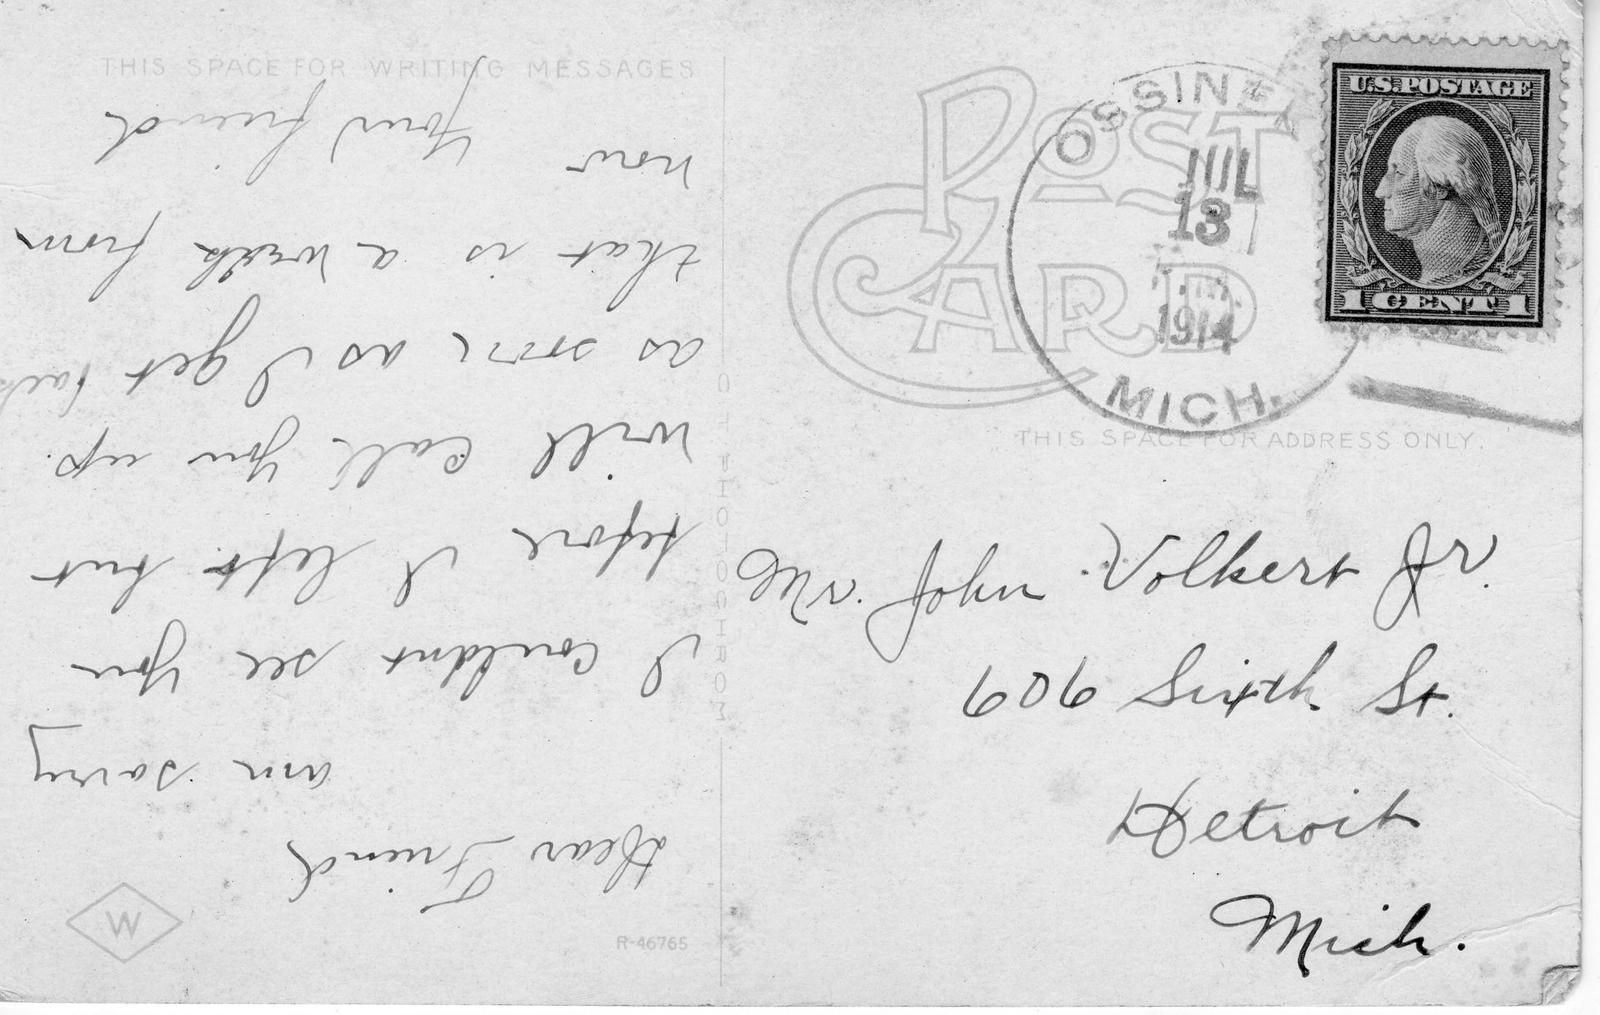 THIS SPACE FOR WRITING MESSAGES
Dear Friend
am sorry
I couldnt see you
before I left but
will call you up
as soon as I get back
that is a week from
now Your friend
OTTPHOTOCHROM
R-46765
W
POST
CARD
OSSINEKE
JUL
13
1914
MICH.
U.S. POSTAGE
1 CENT 1
THIS SPACE FOR ADDRESS ONLY.
Mr. John Volkert Jr.
609 Sixth St.
Detroit
Mich.